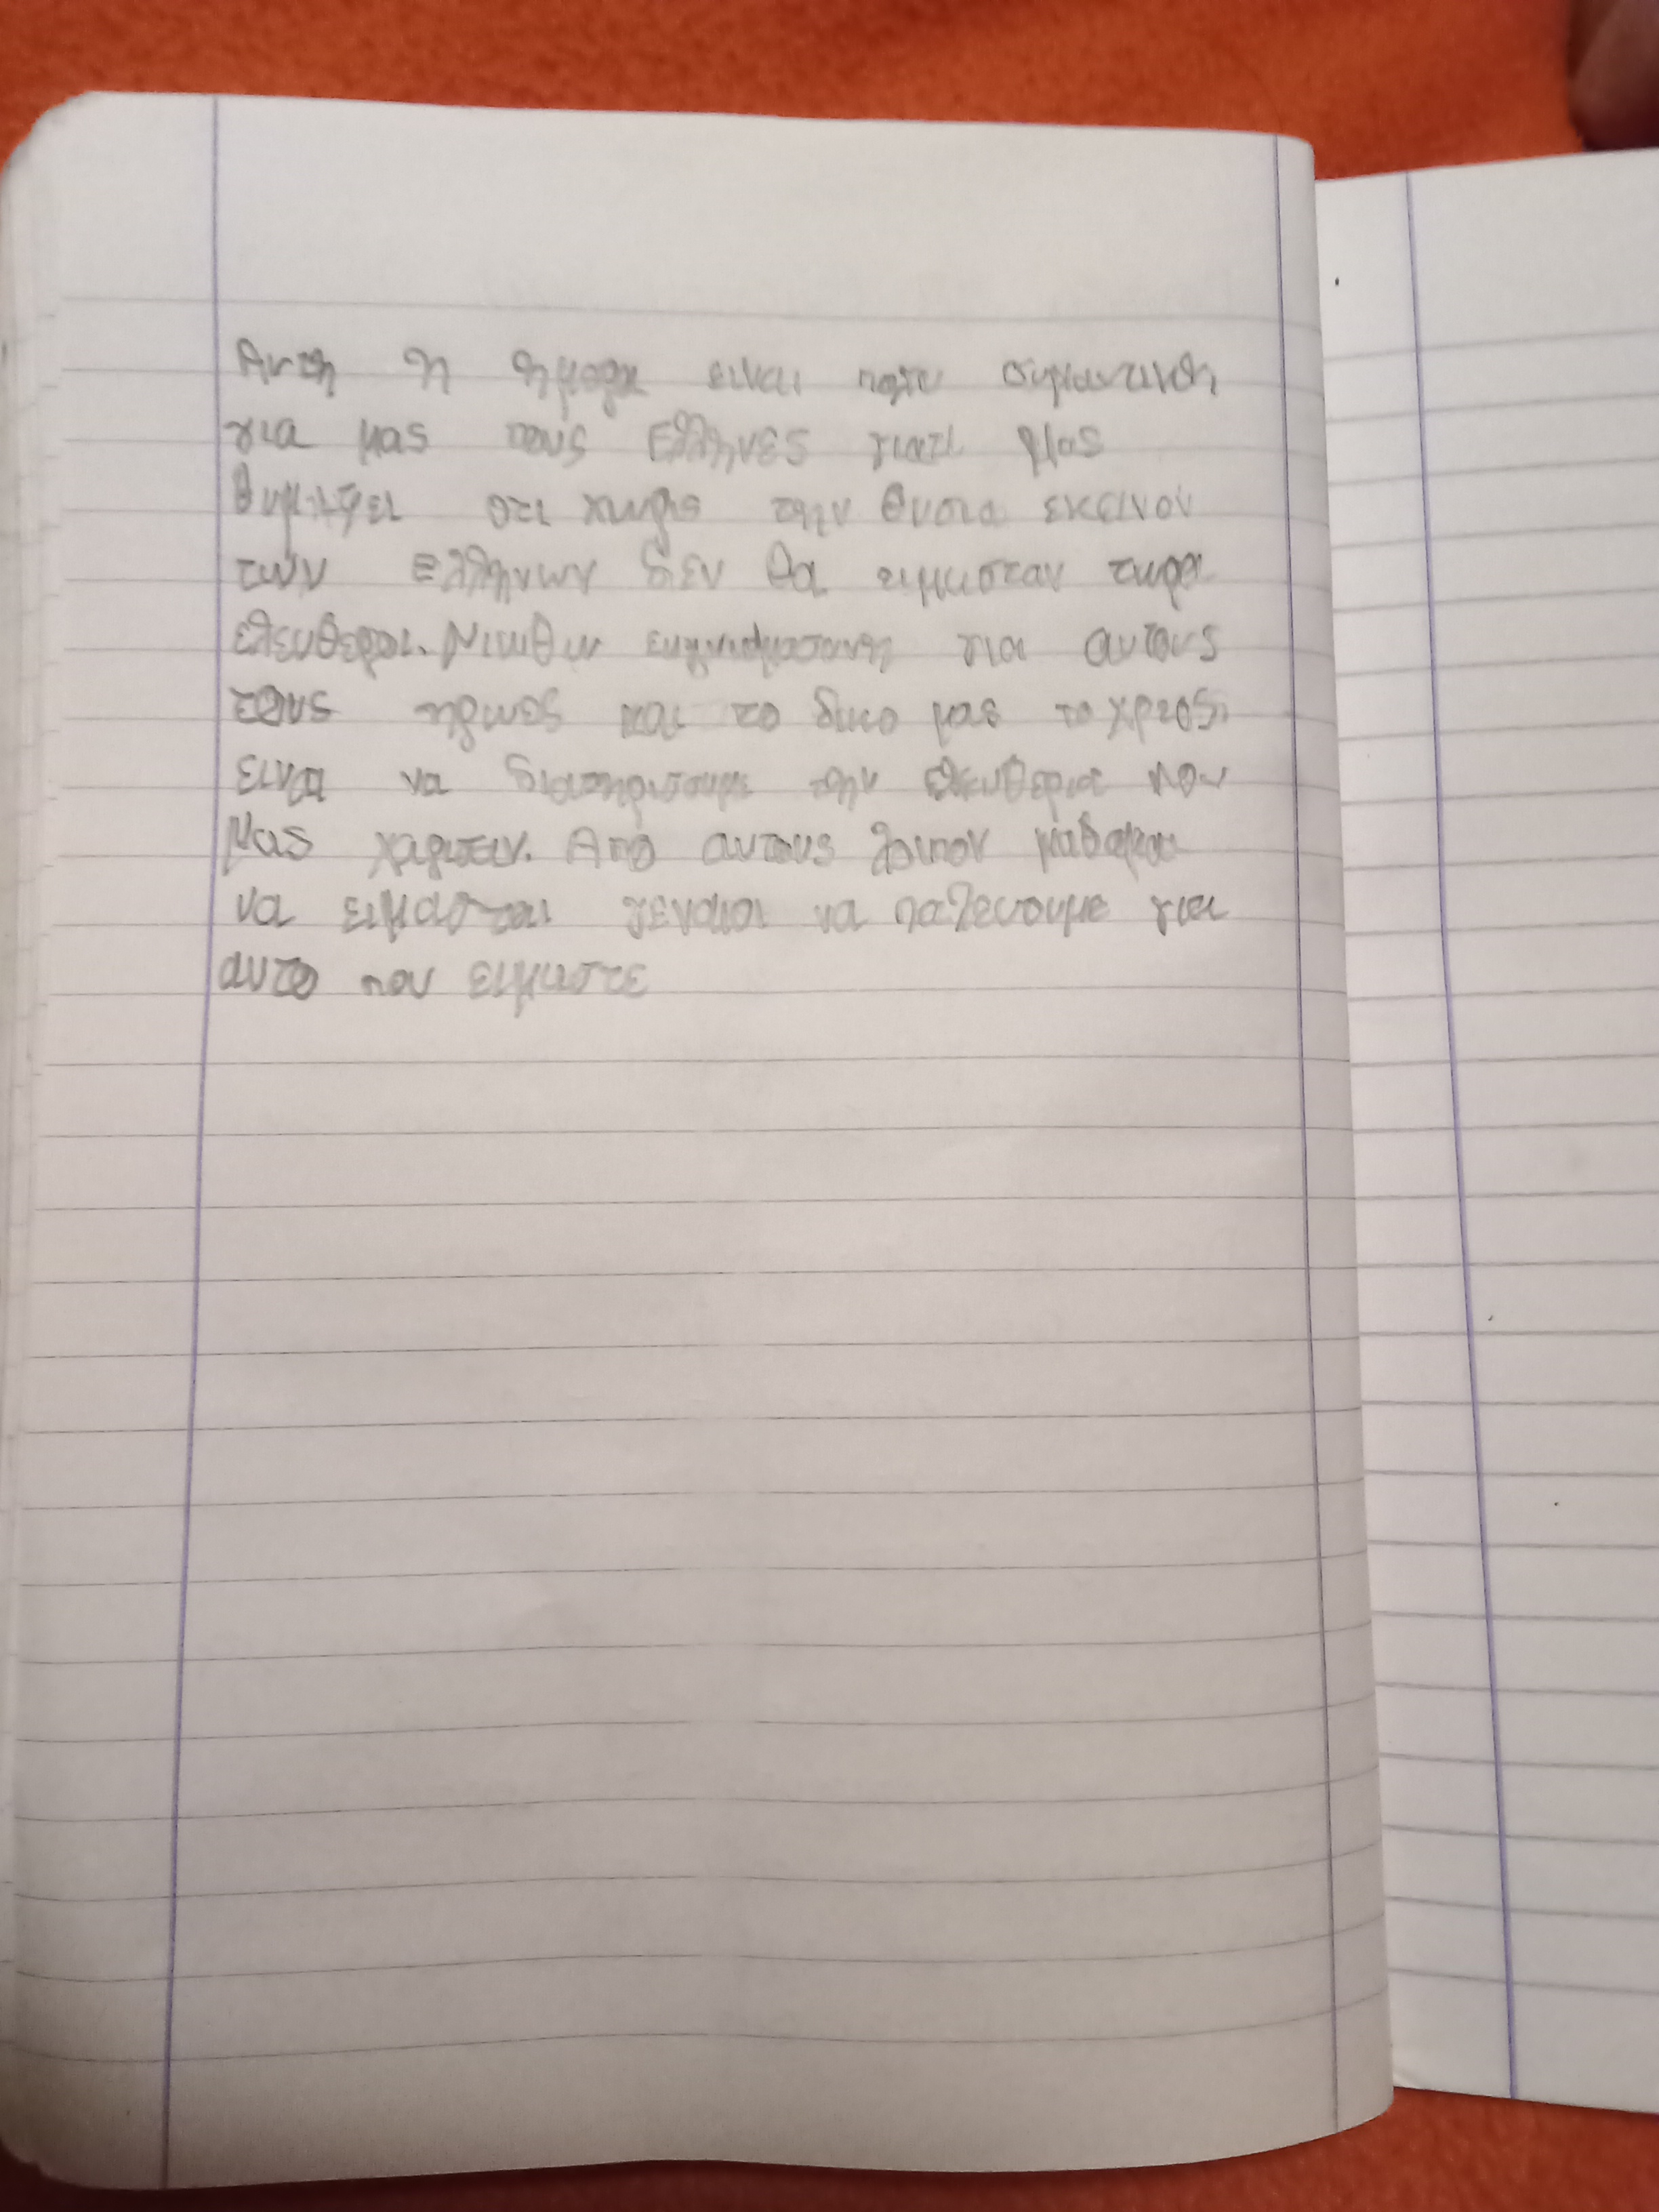 Αυτη η ημερα ειναι πολυ σημαντικη
για μας τους Ελληνες γιατι μας
θυμιζει οτι χωρις την θυσια εκεινον
των Ελληνων δεν θα ειμασταν τωρα
ελευθεροι. Νιωθω για αυτους
και το δικο μας το χρεος
ειναι να διατηρισουμε την ελευθερια που
μας χαρισαν. Απο αυτους λοιπον
να ειμασται να παλευουμε για
αυτο που ειμαστε